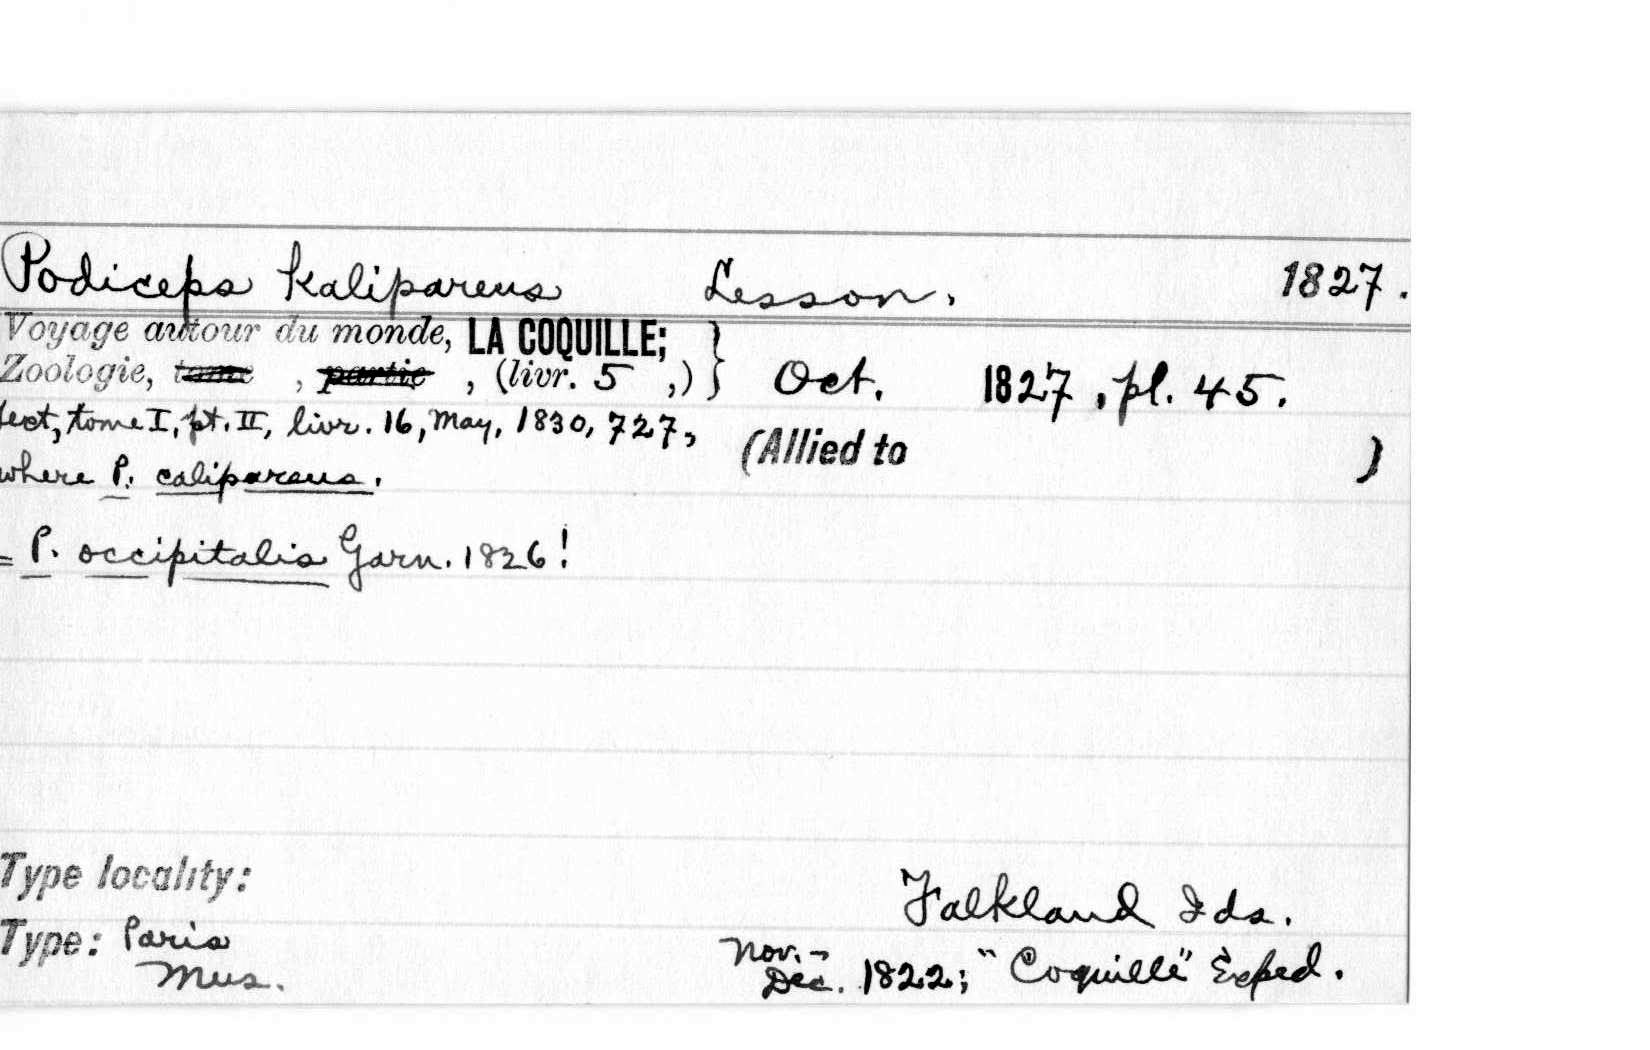 Podiceps kalipareus Lesson. 1827.
Voyage autour du monde, LA COQUILLE; }
Zoologie, tome , partie , (livr. 5 ,) Oct. 1827, pl. 45.
text, tome I, pt. II, livr. 16, May, 1830, 727,
(Allied to )
where P. calipareus.
= P. occipitalis Garn. 1826!
Type locality: Falkland Ids.
Type: Paris Nov.-
Mus. Dec. 1822; "Coquille" Exped.